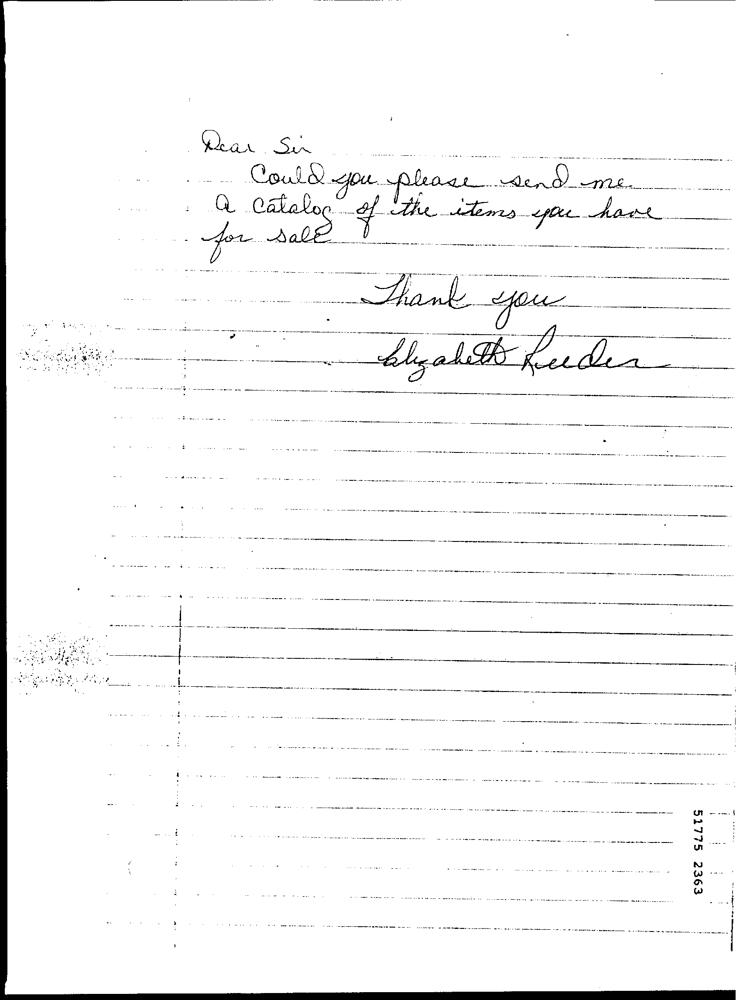 Dear Sir
Could you please send me
a catalog of the items you have
for sale
Thank you
Elizabeth Reeder
51775 2363